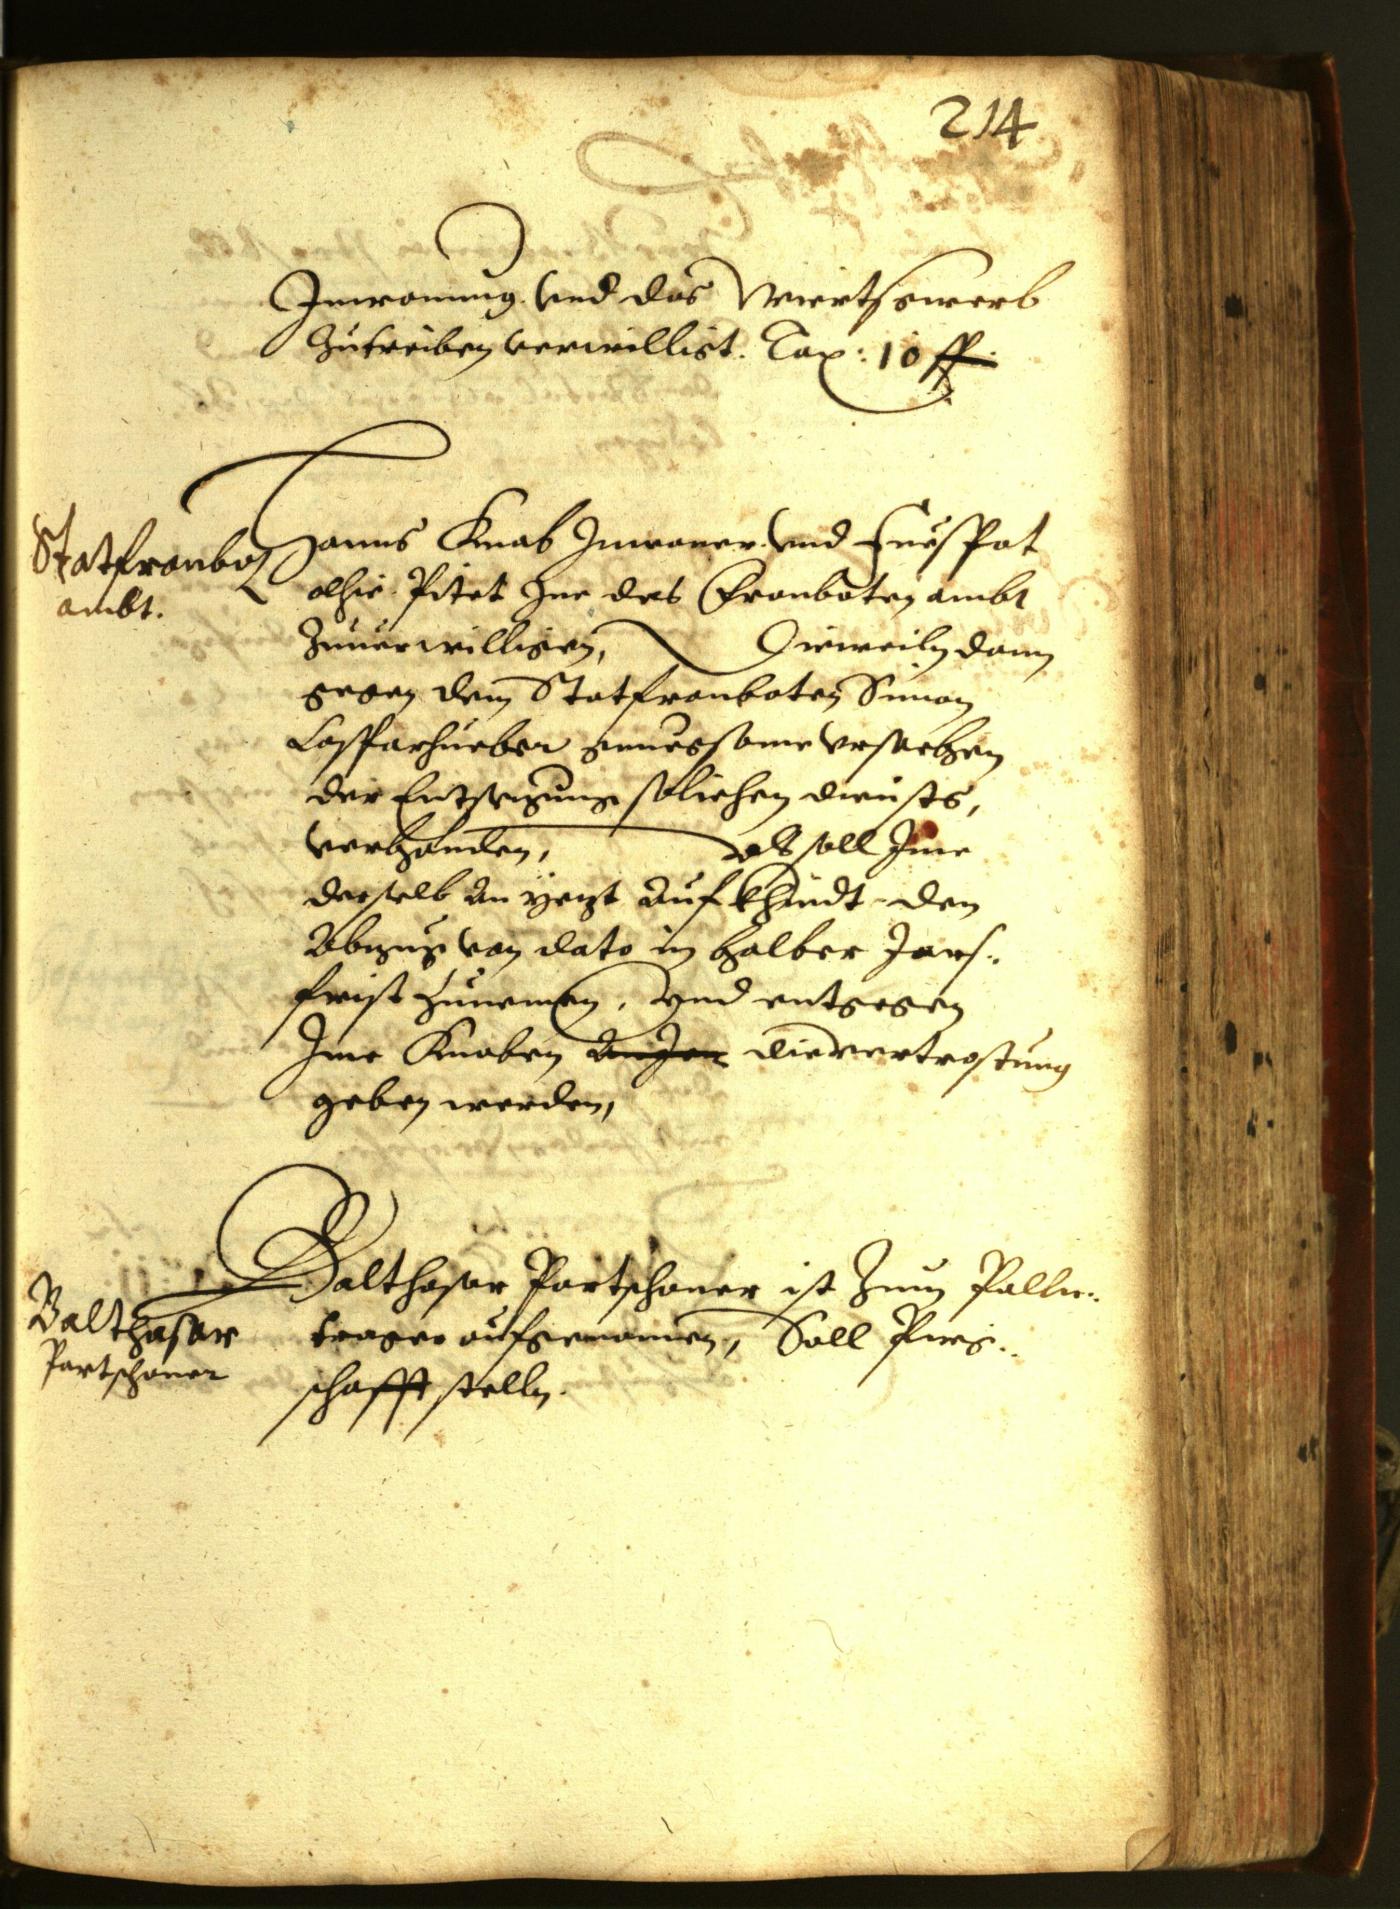 214
Inwonung vnd das Wiertsgwerb
Zutreiben verwillist. Tax: 10 ff
Statfranbot
ambt.
Hanns Knab Inwoner vnd Fueßpot
alhie Pitet Ime das Franboten ambt
Zuuerwilligen, Dieweiln dann
gegen dem Statfranboten Simon
Casparhueber genuegsame vrsachen
der Entsezung solichen diensts,
verhanden, als soll Ime
derselb an yezt aufkhündt den
Abzug von dato in halber Jars-
frist Zunemen, vnd entgegen
Ime Knaben die vertrostung
geben werden,
Balthasar
Partschoner
Balthasar Partschoner ist Zum Palln-
trager aufgenomen, Soll Purg-
schafft stelln.